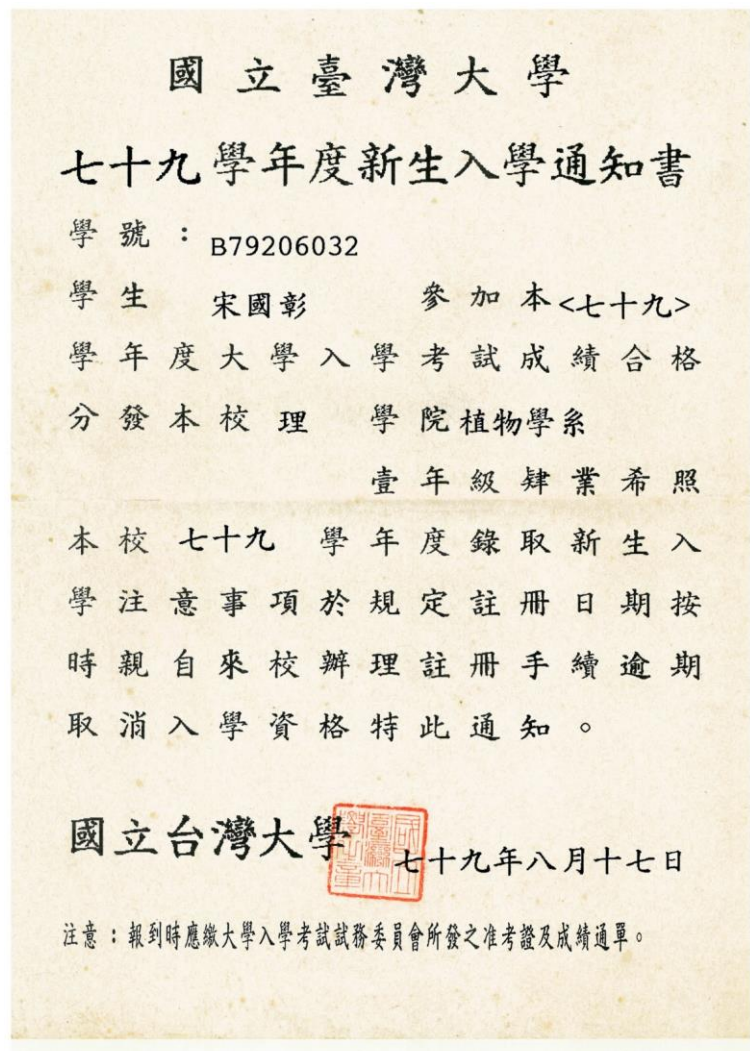 國立臺灣大學
七十九學年度新生入學通知書
學號：B79206032
學生 宋國彰 參加本<七十九>
學年度大學入學考試成績合格
分發本校理 學院植物學系
壹年級肄業希照
本校 七十九 學年度錄取新生入
學注意事項於規定註冊日期按
時親自來校辦理註冊手續逾期
取消入學資格特此通知。
國立台灣大學
七十九年八月十七日
注意：報到時應繳大學入學考試試務委員會所發之准考證及成績通單。